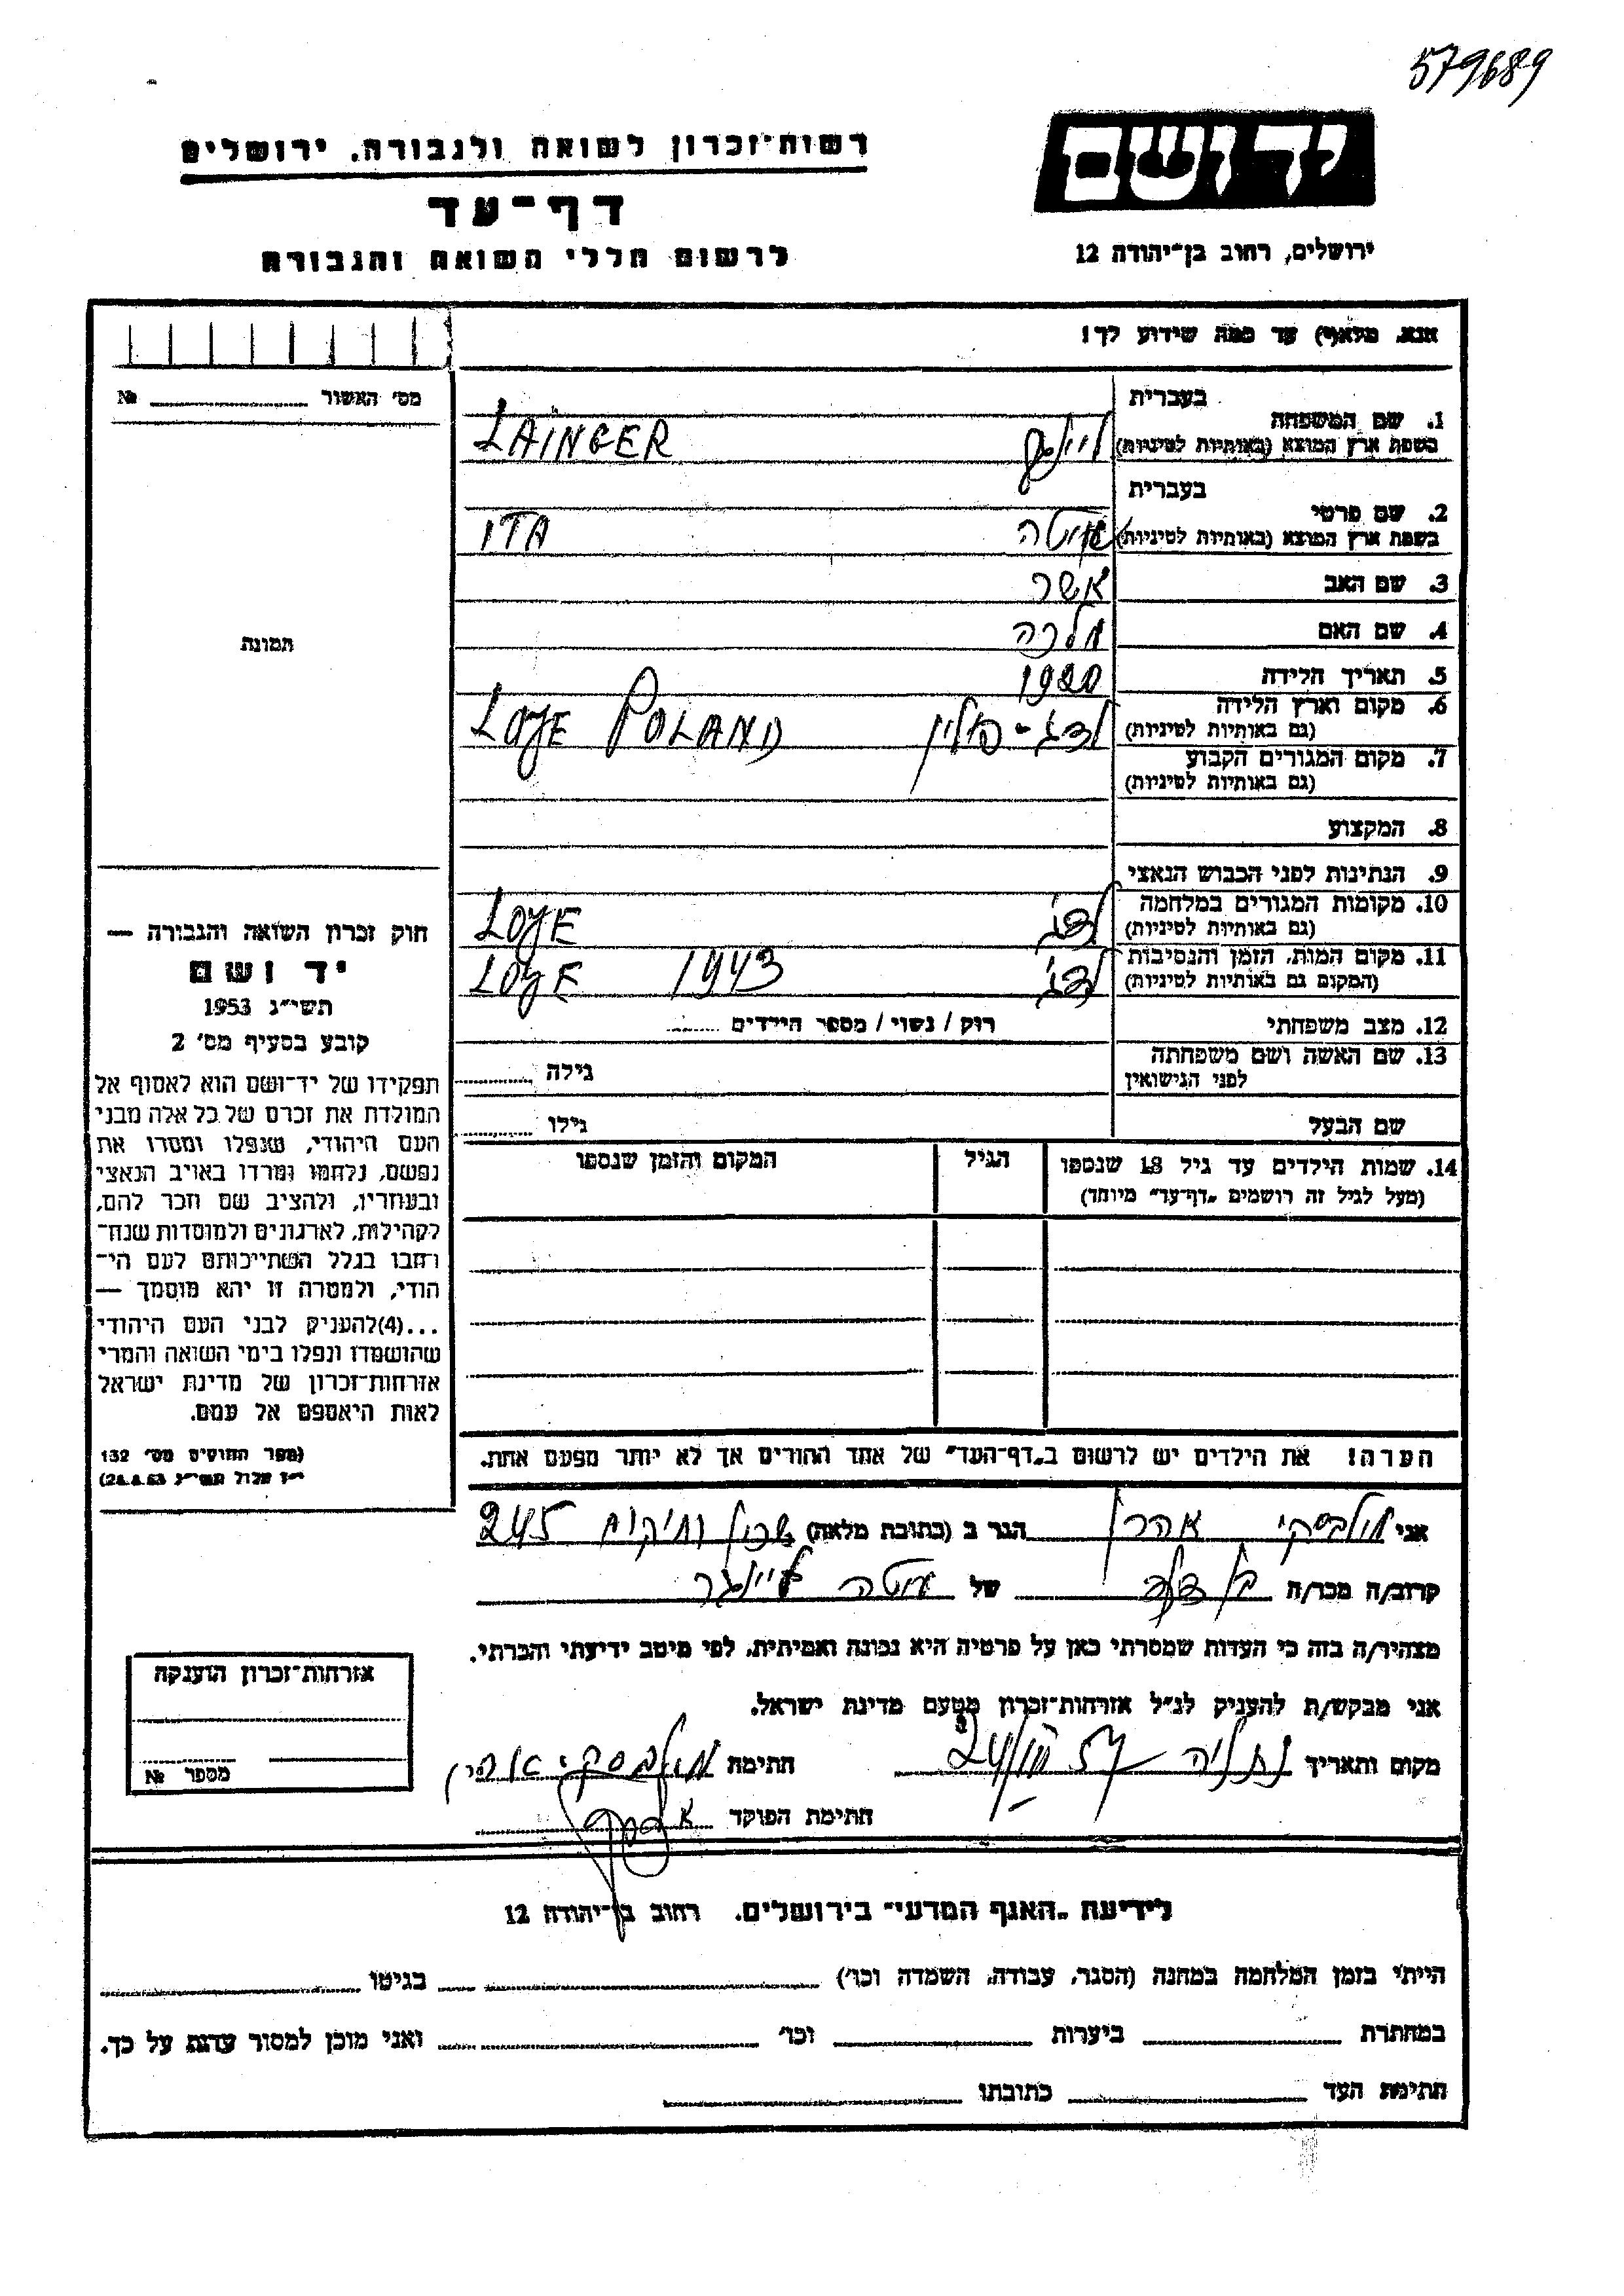 579689
יד ושם
רשות־זכרון לשואה ולגבורה. ירושלים
דף־עד
לרשום חללי השואה והגבורה
ירושלים, רחוב בן־יהודה 12
אנא, מלא(י) עד כמה שידוע לך!
מס׳ האשור №
תמונה
1. שם המשפחה
בעברית
בשפת ארץ המוצא (באותיות לטיניות)
LAINGER
2. שם פרטי
בעברית
בשפת ארץ המוצא (באותיות לטיניות)
ITA
3. שם האב אשר
4. שם האם מלכה
5. תאריך הלידה 1920
6. מקום וארץ הלידה
(גם באותיות לטיניות)
לודג׳ - פולין LOJE POLAND
7. מקום המגורים הקבוע
(גם באותיות לטיניות)
8. המקצוע
9. הנתינות לפני הכבוש הנאצי
10. מקומות המגורים במלחמה
(גם באותיות לטיניות)
LOJE
11. מקום המות, הזמן והנסיבות
(המקום גם באותיות לטיניות)
1943 LOJE
12. מצב משפחתי רוק / נשוי / מספר הילדים
13. שם האשה ושם משפחתה
לפני הנישואין
גילה
שם הבעל גילו
14. שמות הילדים עד גיל 18 שנספו
(מעל לגיל זה רושמים „דף־עד״ מיוחד)
הגיל
המקום והזמן שנספו
חוק זכרון השואה והגבורה —
יד ושם
תשי״ג 1953
קובע בסעיף מס׳ 2
תפקידו של יד־ושם הוא לאסוף אל
המולדת את זכרם של כל אלה מבני
העם היהודי, שנפלו ומסרו את
נפשם, נלחמו ומרדו באויב הנאצי
ובעוזריו, ולהציב שם וזכר להם,
לקהילות, לארגונים ולמוסדות שנח־
רחבו בגלל השתייכותם לעם הי־
הודי, ולמטרה זו יהא מוסמך —
...(4)להעניק לבני העם היהודי
שהושמדו ונפלו בימי השואה והמרי
אזרחות־זכרון של מדינת ישראל
לאות היאספם אל עמם.
(ספר החוקים מס׳ 132
הערה! את הילדים יש לרשום ב„דף־העד״ של אחד ההורים אך לא יותר מפעם אחת.
אני אהרן הגר ב (כתובת מלאה) שכון ותיקים 245
קרוב/ה מכר/ה בן דוד של איטה ליינגר
מצהיר/ה בזה כי העדות שמסרתי כאן על פרטיה היא נכונה ואמיתית, לפי מיטב ידיעתי והכרתי.
אני מבקש/ת להעניק לנ״ל אזרחות־זכרון מטעם מדינת ישראל.
מקום ותאריך נתניה חתימת
חתימת הפוקד
אזרחות־זכרון הוענקה
מספר №
לידיעת „האגף המדעי״ בירושלים. רחוב בן־יהודה 12
הייתי בזמן המלחמה במחנה (הסגר, עבודה, השמדה וכו׳) בגיטו
במחתרת ביערות וכו׳ ואני מוכן למסור עדות על כך.
חתימת העד כתובתו